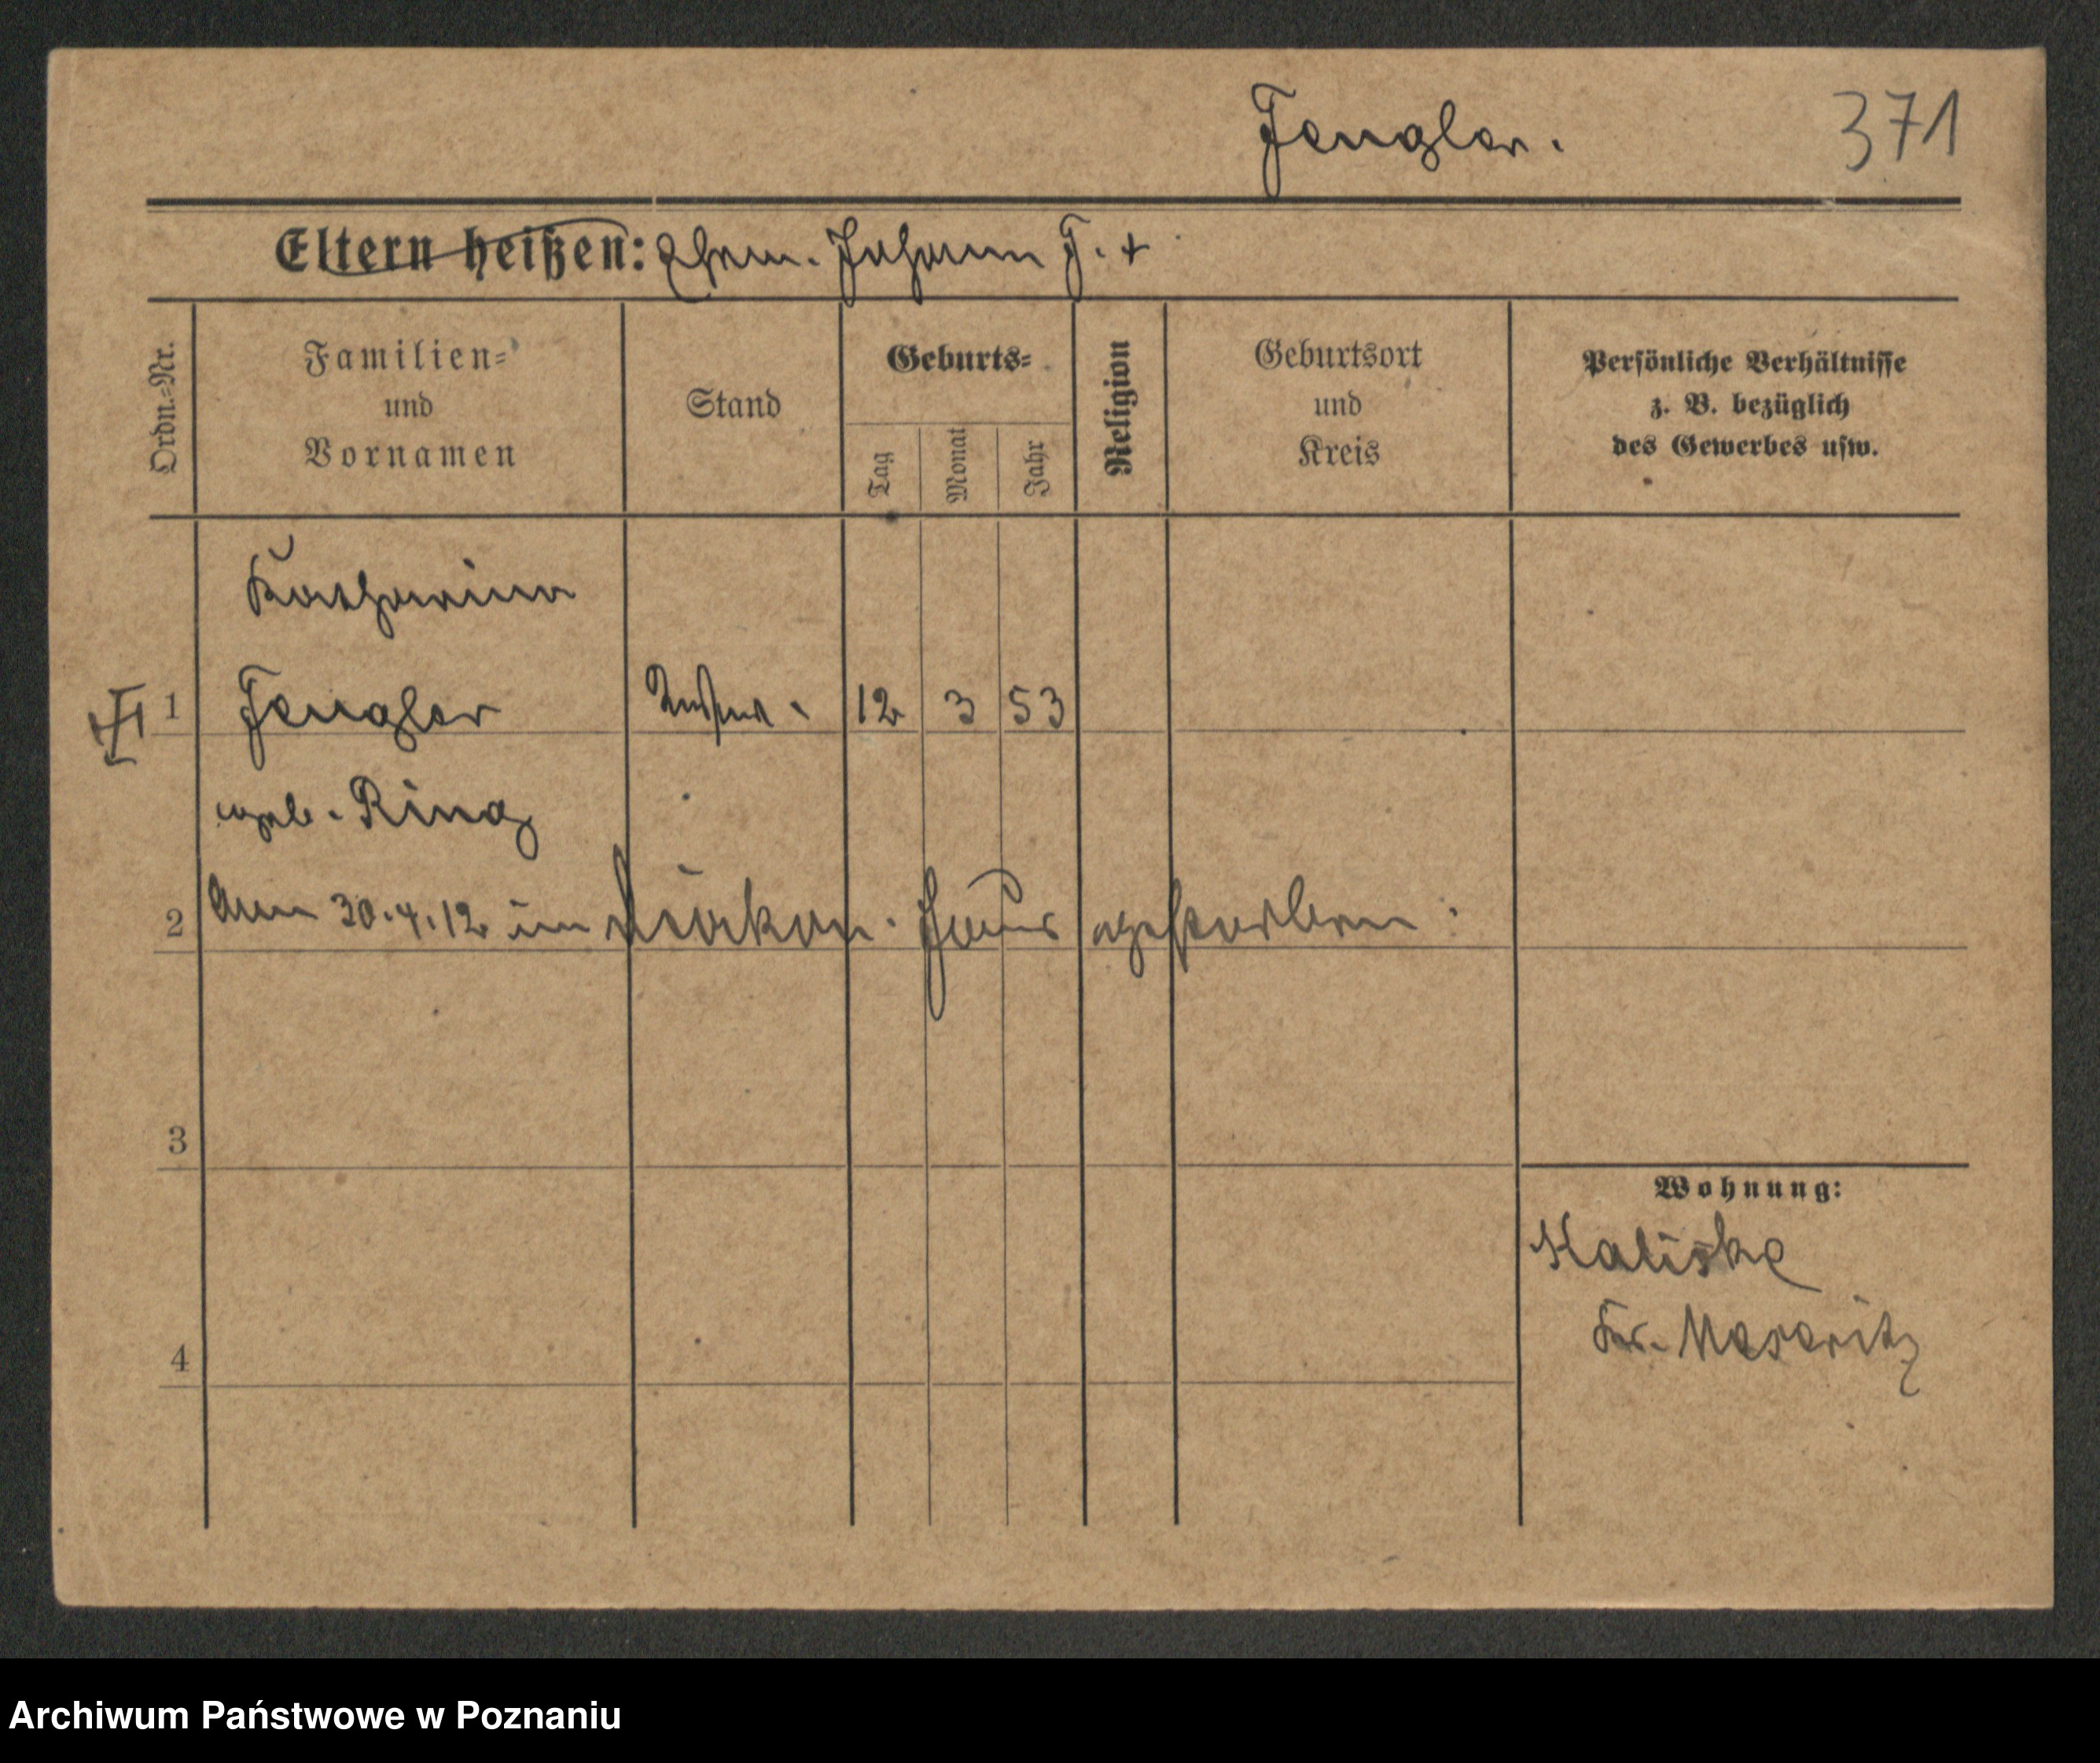 Fengler.
371
Eltern heißen: Ehem. Johann F. +
Ordn.=Nr.
Familien=
und
Vornamen
Stand
Geburts=
Tag
Monat
Jahr
Religion
Geburtsort
und
Kreis
Persönliche Verhältnisse
z. B. bezüglich
des Gewerbes usw.
Katharina
1 Fengler 12 3 53
geb. Ring
2 Am 30.4.12 im Diakon. Haus gestorben.
3
Wohnung:
Kaliske
Kr. Meseritz
4
Archiwum Państwowe w Poznaniu